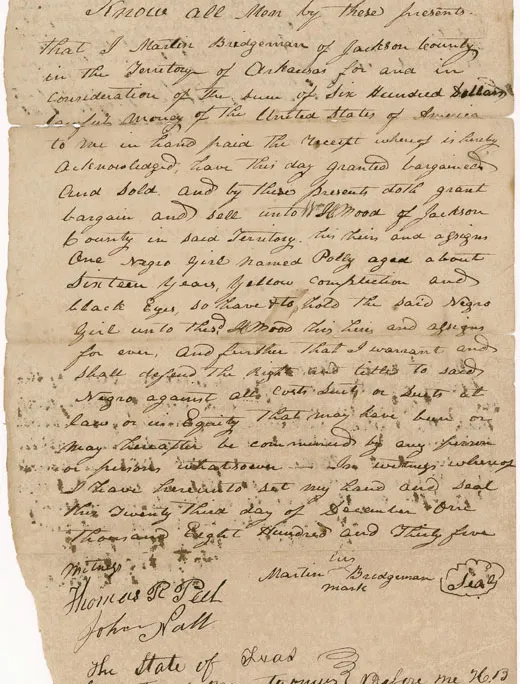 Know all Men by these presents.
that I Martin Bridgeman of Jackson County
in the Territory of Arkansas for and in
consideration of the sum of Six Hundred Dollars
lawful money of the United States of America
to me in hand paid the receipt whereof is hereby
acknowledged, have this day granted bargained
and Sold and by these presents doth grant
bargain and sell unto Wm H Wood of Jackson
County in said Territory. his heirs and assigns
One Negro Girl named Polly aged about
Sixteen Years, Yellow complection and
black Eyes, so have & to hold the said Negro
Girl unto the sd H Wood his heirs and assigns
for ever, and further that I warrant and
shall defend the Right and title to said
Negro against all Costs Suits or Suits at
law or in Equity that may have been or
may hereafter be commenced by any person
or persons whatsown — In witness whereof
I have hereunto set my hand and seal
this Twenty third day of December One
thousand Eight Hundred and Thirty five
his
witness Martin Bridgeman Seal
mark
Thomas R
John
the State of Texas
Before me H, B